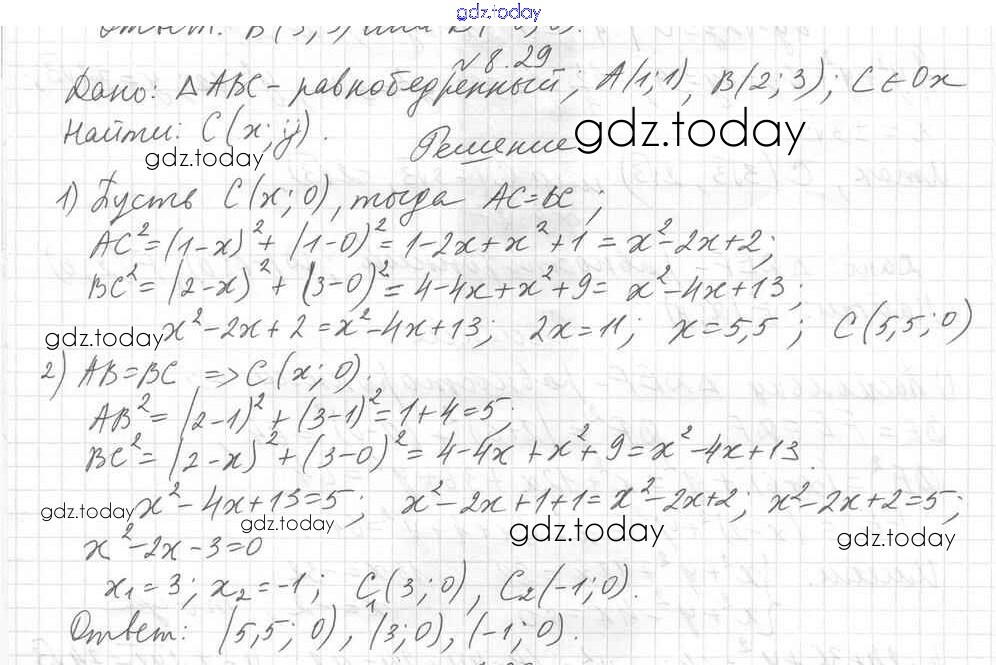 gdz.today
Ответ: B(
№8.29
Дано: △ABC - равнобедренный; A(1;1), B(2;3); C∈Ox
Найти: C(x;y).
gdz.today
gdz.today
Решение
1) Пусть C(x;0), тогда AC=BC;
AC²=(1-x)²+(1-0)²=1-2x+x²+1=x²-2x+2;
BC²=(2-x)²+(3-0)²=4-4x+x²+9=x²-4x+13;
gdz.today
x²-2x+2=x²-4x+13; 2x=11; x=5,5; C(5,5;0)
2) AB=BC => C(x;0).
AB²=(2-1)²+(3-1)²=1+4=5;
BC²=(2-x)²+(3-0)²=4-4x+x²+9=x²-4x+13.
gdz.today
x²-4x+13=5; x²-2x+1+1=x²-2x+2; x²-2x+2=5;
gdz.today
gdz.today
gdz.today
x²-2x-3=0
x₁=3; x₂=-1; C₁(3;0), C₂(-1;0).
Ответ: (5,5;0), (3;0), (-1;0).